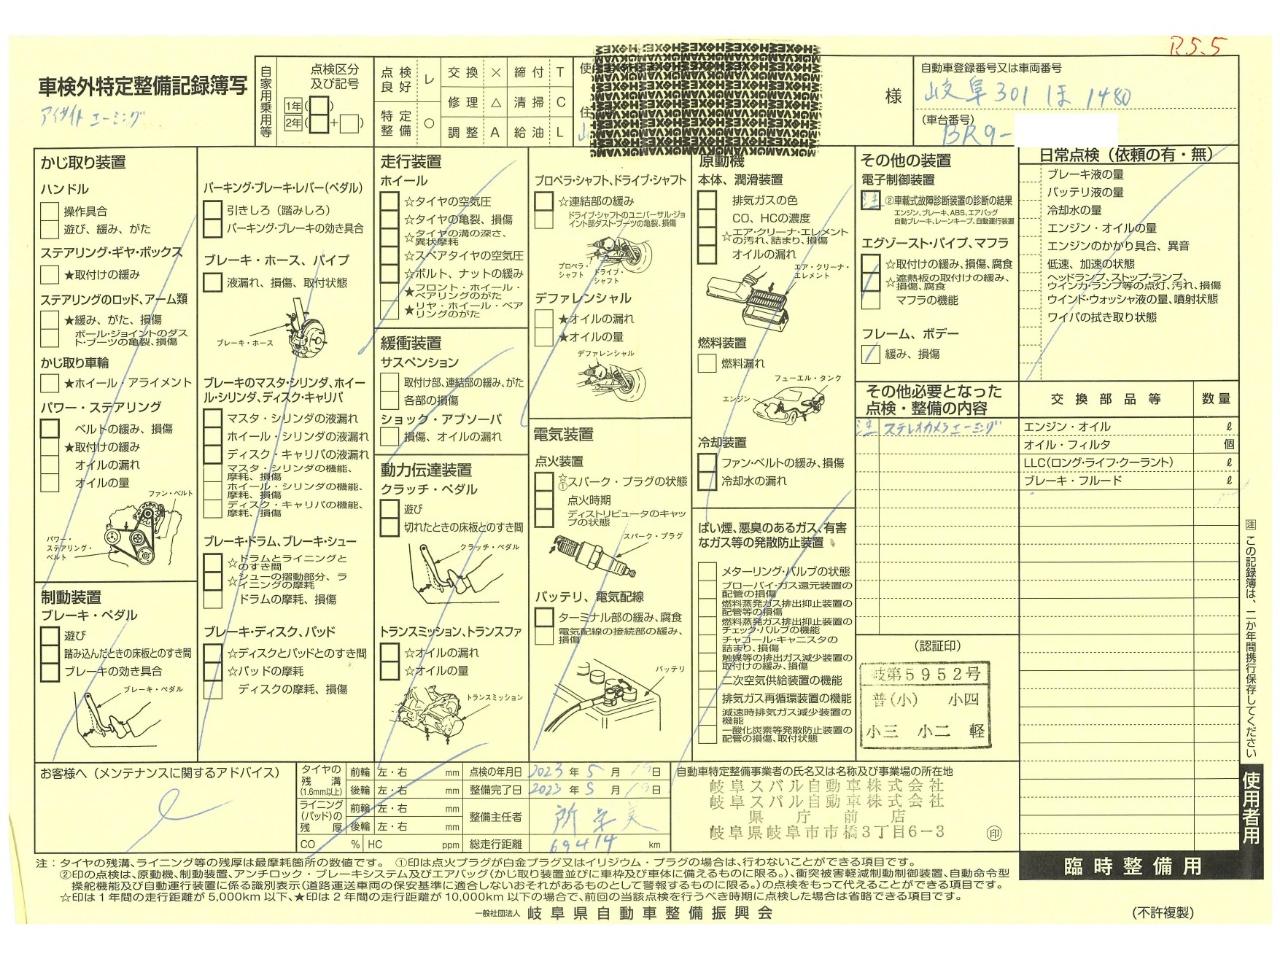 R5.5
車検外特定整備記録簿写
アイサイト エーミング
自家用乗用等
点検区分及び記号
1年( )
2年( )+
点検良好 レ 交換 × 締付 T
特定整備 ○ 修理 △ 清掃 C
調整 A 給油 L
様
自動車登録番号又は車両番号
岐阜 301 ほ 1480
(車台番号)
BR9-
かじ取り装置
ハンドル
操作具合
遊び、緩み、がた
ステアリング・ギヤ・ボックス
★取付けの緩み
ステアリングのロッド、アーム類
★緩み、がた、損傷
ボール・ジョイントのダスト・ブーツの亀裂、損傷
かじ取り車輪
★ホイール・アライメント
パワー・ステアリング
ベルトの緩み、損傷
★取付けの緩み
オイルの漏れ
オイルの量
ファン・ベルト
パワー・ステアリング・ベルト
制動装置
ブレーキ・ペダル
遊び
踏み込んだときの床板とのすき間
ブレーキの効き具合
ブレーキ・ペダル
パーキング・ブレーキ・レバー(ペダル)
引きしろ(踏みしろ)
パーキング・ブレーキの効き具合
ブレーキ・ホース、パイプ
液漏れ、損傷、取付状態
ブレーキ・ホース
ブレーキのマスタ・シリンダ、ホイール・シリンダ、ディスク・キャリパ
マスタ・シリンダの液漏れ
ホイール・シリンダの液漏れ
ディスク・キャリパの液漏れ
マスタ・シリンダの機能、摩耗、損傷
ホイール・シリンダの機能、摩耗、損傷
ディスク・キャリパの機能、摩耗、損傷
ブレーキ・ドラム、ブレーキ・シュー
☆ドラムとライニングとのすき間
☆シューの摺動部分、ライニングの摩耗
ドラムの摩耗、損傷
ブレーキ・ディスク、パッド
☆ディスクとパッドとのすき間
☆パッドの摩耗
ディスクの摩耗、損傷
走行装置
ホイール
☆タイヤの空気圧
☆タイヤの亀裂、損傷
☆タイヤの溝の深さ、異状摩耗
☆スペアタイヤの空気圧
☆ボルト、ナットの緩み
★フロント・ホイール・ベアリングのがた
★リヤ・ホイール・ベアリングのがた
緩衝装置
サスペンション
取付け部、連結部の緩み、がた
各部の損傷
ショック・アブソーバ
損傷、オイルの漏れ
動力伝達装置
クラッチ・ペダル
遊び
切れたときの床板とのすき間
クラッチ・ペダル
トランスミッション、トランスファ
☆オイルの漏れ
☆オイルの量
トランスミッション
プロペラ・シャフト、ドライブ・シャフト
☆連結部の緩み
ドライブ・シャフトのユニバーサル・ジョイント部ダスト・ブーツの亀裂、損傷
プロペラ・シャフト
ドライブ・シャフト
デファレンシャル
★オイルの漏れ
★オイルの量
デファレンシャル
電気装置
点火装置
☆①スパーク・プラグの状態
点火時期
ディストリビュータのキャップの状態
スパーク・プラグ
バッテリ、電気配線
ターミナル部の緩み、腐食
電気配線の接続部の緩み、損傷
バッテリ
原動機
本体、潤滑装置
排気ガスの色
CO、HCの濃度
☆エア・クリーナ・エレメントの汚れ、詰まり、損傷
オイルの漏れ
エア・クリーナ・エレメント
燃料装置
燃料漏れ
フューエル・タンク
エンジン
冷却装置
ファン・ベルトの緩み、損傷
冷却水の漏れ
ばい煙、悪臭のあるガス、有害なガス等の発散防止装置
メターリング・バルブの状態
ブローバイ・ガス還元装置の配管の損傷
燃料蒸発ガス排出抑止装置の配管等の損傷
燃料蒸発ガス排出抑止装置のチェック・バルブの機能
チャコール・キャニスタの詰まり、損傷
触媒等の排出ガス減少装置の取付けの緩み、損傷
二次空気供給装置の機能
排気ガス再循環装置の機能
減速時排気ガス減少装置の機能
一酸化炭素等発散防止装置の配管の損傷、取付状態
その他の装置
電子制御装置
②車載式故障診断装置の診断の結果
エンジン、ブレーキ、ABS、エアバッグ
自動ブレーキ、レーンキープ、自動運行装置
エグゾースト・パイプ、マフラ
☆取付けの緩み、損傷、腐食
☆遮熱板の取付けの緩み、損傷、腐食
マフラの機能
フレーム、ボデー
緩み、損傷
その他必要となった点検・整備の内容
ステレオカメラエーミング
(認証印)
岐第5952号
普(小) 小四
小三 小二 軽
日常点検(依頼の有・無)
ブレーキ液の量
バッテリ液の量
冷却水の量
エンジン・オイルの量
エンジンのかかり具合、異音
低速、加速の状態
ヘッドランプ、ストップ・ランプ、ウインカ・ランプ等の点灯、汚れ、損傷
ウインド・ウォッシャ液の量、噴射状態
ワイパの拭き取り状態
交換部品等 数量
エンジン・オイル ℓ
オイル・フィルタ 個
LLC(ロング・ライフ・クーラント) ℓ
ブレーキ・フルード ℓ
注 この記録簿は、二か年間携行保存してください
使用者用
お客様へ(メンテナンスに関するアドバイス)
タイヤの残溝(1.6mm以上) 前輪 左・右 mm
後輪 左・右 mm
ライニング(パッド)の残厚 前輪 左・右 mm
後輪 左・右 mm
CO % HC ppm
点検の年月日 2023年5月 日
整備完了日 2023年5月 日
整備主任者
総走行距離 69414 km
自動車特定整備事業者の氏名又は名称及び事業場の所在地
岐阜スバル自動車株式会社
岐阜スバル自動車株式会社
県庁前店
岐阜県岐阜市市橋3丁目6-3
㊞
注:タイヤの残溝、ライニング等の残厚は最摩耗箇所の数値です。 ①印は点火プラグが白金プラグ又はイリジウム・プラグの場合は、行わないことができる項目です。
②印の点検は、原動機、制動装置、アンチロック・ブレーキシステム及びエアバッグ(かじ取り装置並びに車枠及び車体に備えるものに限る。)、衝突被害軽減制動制御装置、自動命令型
操舵機能及び自動運行装置に係る識別表示(道路運送車両の保安基準に適合しないおそれがあるものとして警報するものに限る。)の点検をもって代えることができる項目です。
☆印は1年間の走行距離が5,000km以下、★印は2年間の走行距離が10,000km以下の場合で、前回の当該点検を行うべき時期に点検した場合は省略できる項目です。
一般社団法人 岐阜県自動車整備振興会
臨時整備用
(不許複製)